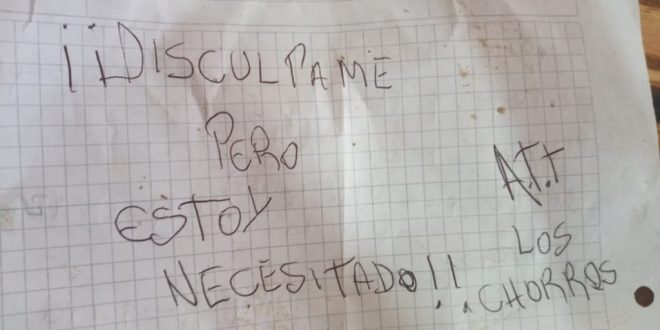 ¡¡DISCULPAME
PERO
ESTOY
NECESITADO!!
A.T.t
LOS
CHORROS